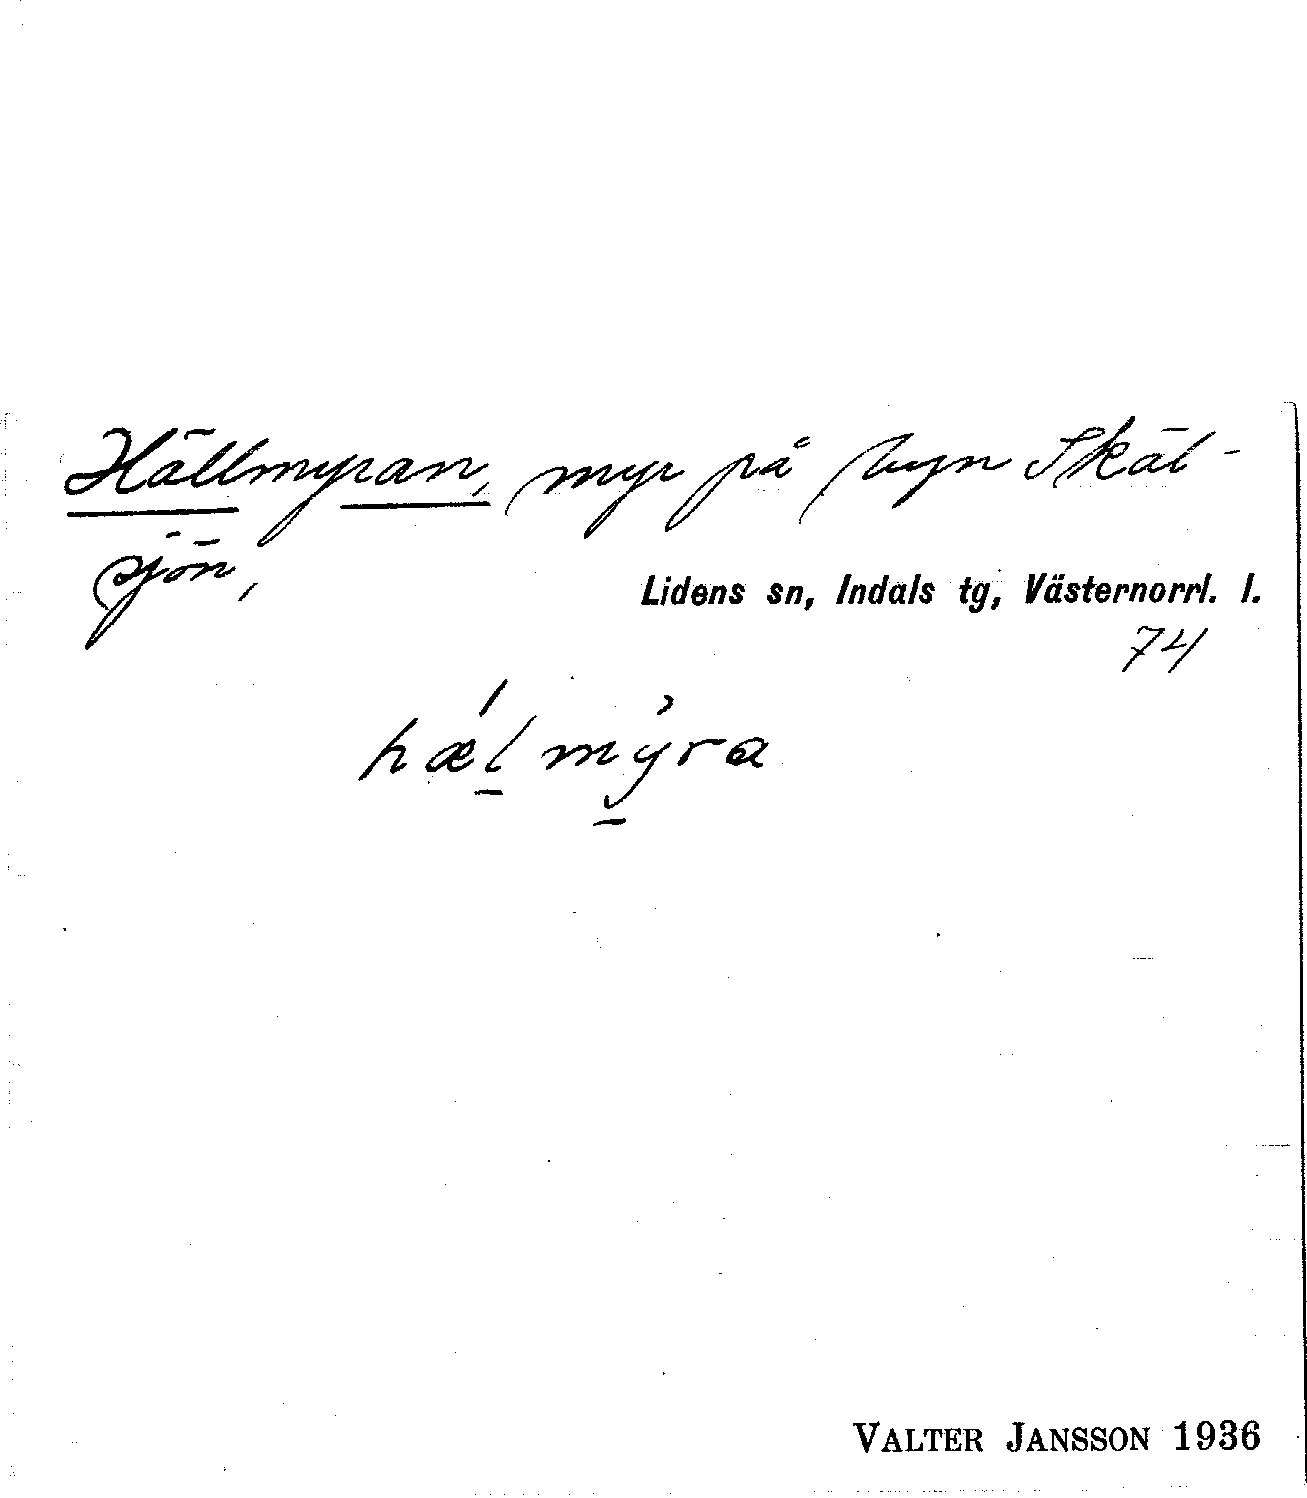 Hällmyran, myr på byn Skäl-
sjön,
Lidens sn, Indals tg, Västernorrl. l.
74
hæ̀l mỳra
VALTER JANSSON 1936